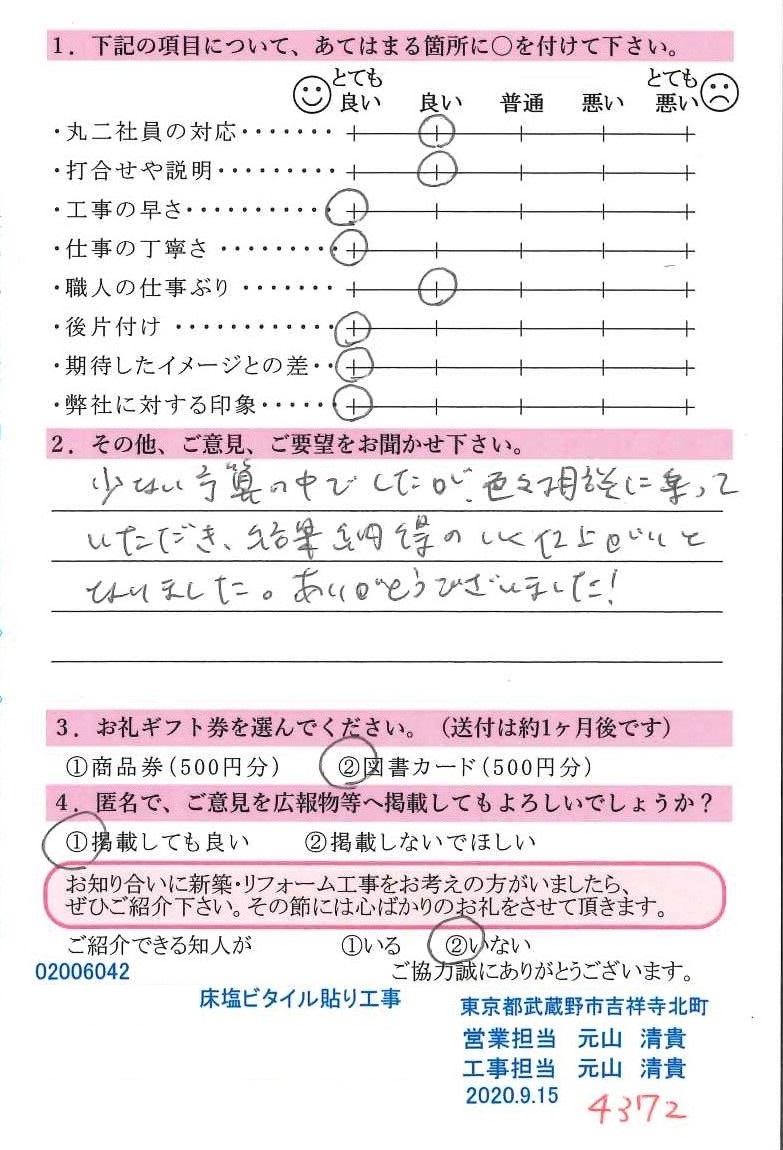 1．下記の項目について、あてはまる箇所に○を付けて下さい。
とても良い 良い 普通 悪い とても悪い
・丸二社員の対応・・・・・・・
・打合せや説明・・・・・・・・・
・工事の早さ・・・・・・・・・・・
・仕事の丁寧さ・・・・・・・・・
・職人の仕事ぶり・・・・・・・
・後片付け・・・・・・・・・・・・
・期待したイメージとの差・・
・弊社に対する印象・・・・・・
2．その他、ご意見、ご要望をお聞かせ下さい。
少ない予算の中でしたが、色々相談に乗って
いただき、結果納得のいく仕上がりと
なりました。ありがとうございました！
3．お礼ギフト券を選んでください。（送付は約1ヶ月後です）
①商品券（500円分） ②図書カード（500円分）
4．匿名で、ご意見を広報物等へ掲載してもよろしいでしょうか？
①掲載しても良い ②掲載しないでほしい
お知り合いに新築・リフォーム工事をお考えの方がいましたら、
ぜひご紹介下さい。その節には心ばかりのお礼をさせて頂きます。
ご紹介できる知人が ①いる ②いない
02006042 ご協力誠にありがとうございます。
床塩ビタイル貼り工事
東京都武蔵野市吉祥寺北町
営業担当 元山 清貴
工事担当 元山 清貴
2020.9.15 4372